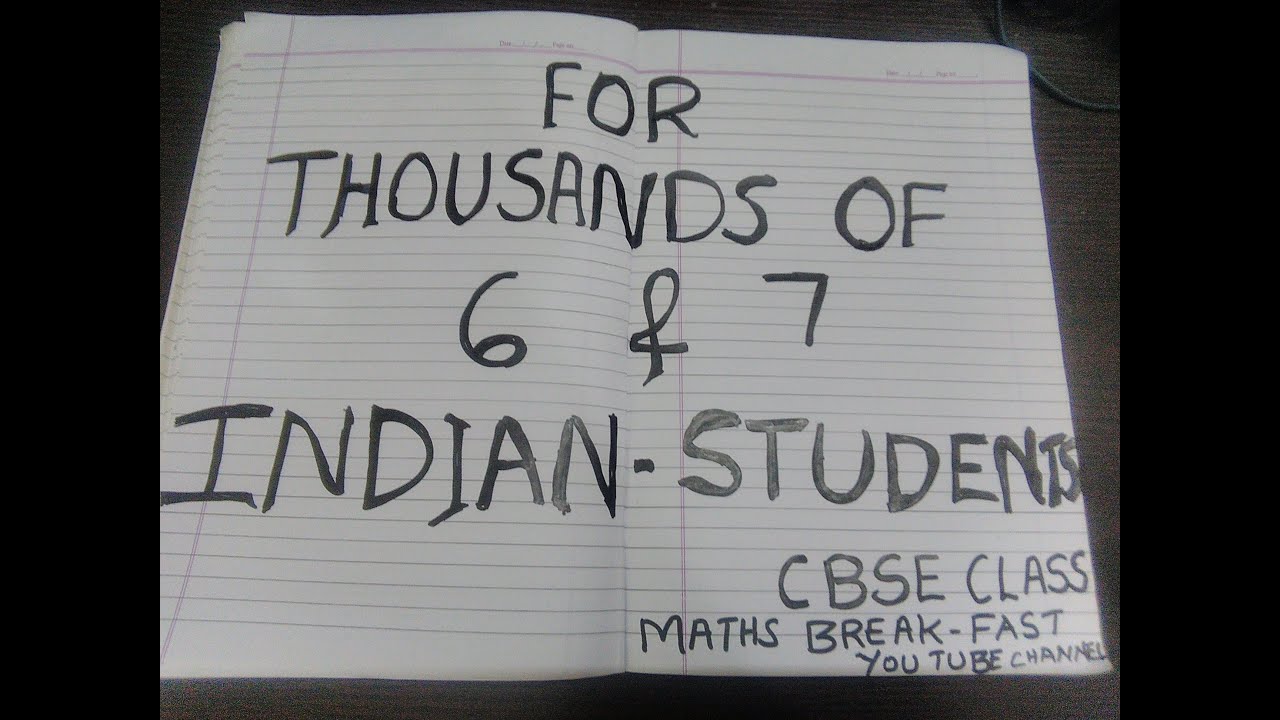 Date __/__/__ Page no.____
Date __/__/__ Page no.____
FOR
THOUSANDS OF
6 & 7
INDIAN-STUDENTS
CBSE CLASS
MATHS BREAK-FAST
YOU TUBE CHANNEL